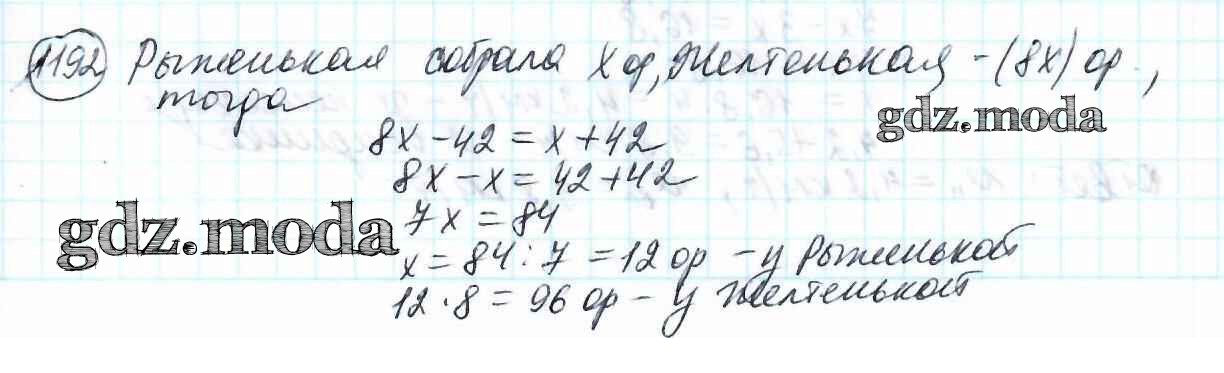 1192 Рыженькая собрала x ор, Желтенькая - (8x) ор.,
тогда
gdz.moda
8x - 42 = x + 42
8x - x = 42 + 42
gdz.moda
7x = 84
x = 84 : 7 = 12 ор - у Рыженькой
12 · 8 = 96 ор - у Желтенькой